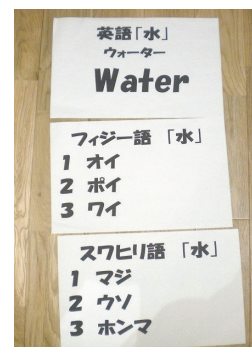 英語「水」
ウォーター
Water
フィジー語 「水」
1 オイ
2 ポイ
3 ワイ
スワヒリ語 「水」
1 マジ
2 ウソ
3 ホンマ